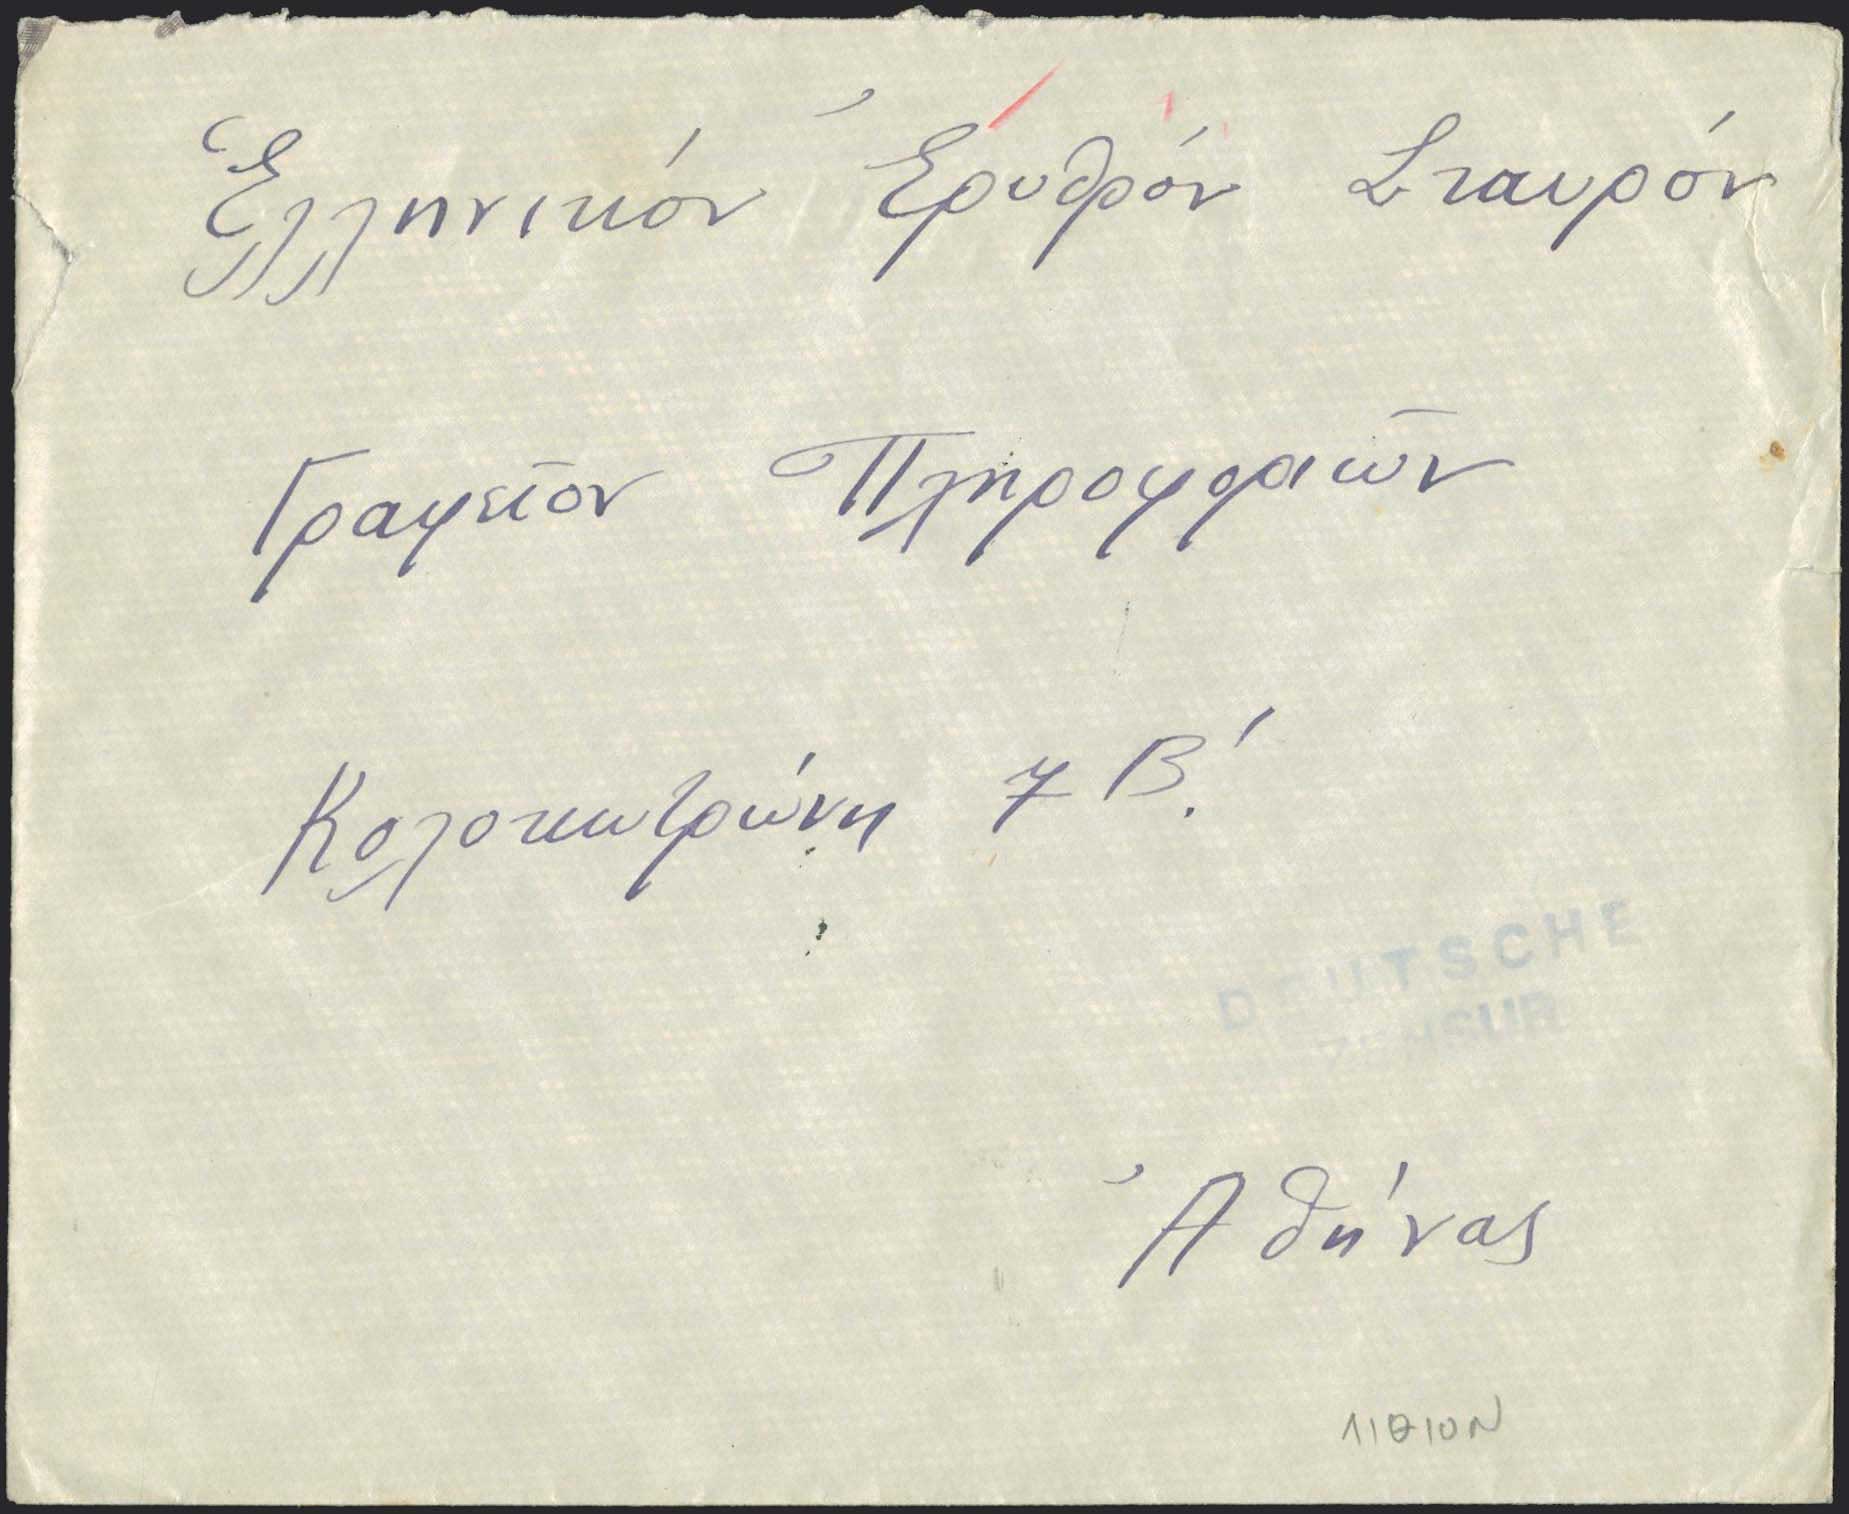 Ἑλληνικόν Ἐρυθρόν Σταυρόν
Γραφεῖον Πληροφοριῶν
Κολοκωτρώνη 7 Β!
DEUTSCHE
ZENSUR
Ἀθήνας
ΛΙΘΙΟΝ